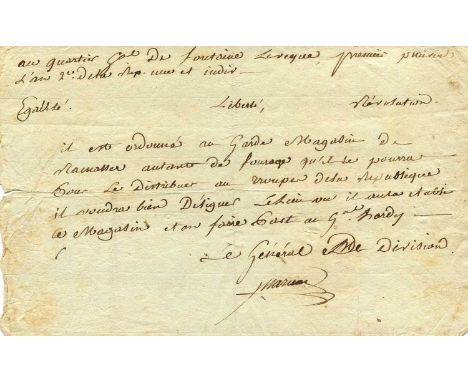 au quartier gal de fontaine Leveque, premier prairial
L'an 2me de la Rep. une et indiv
Egallité. Liberté, Révolution.
il est ordonné au Garde Magasin de
Ramasser autant de fourage qu'il se pourra
pour Le Distribuer au trouppe de la Republique
il voudra bien Désigner Le Lieu ou il aura établi
ce Magasin et en faire Part au Gal hardy
Le Général de Division